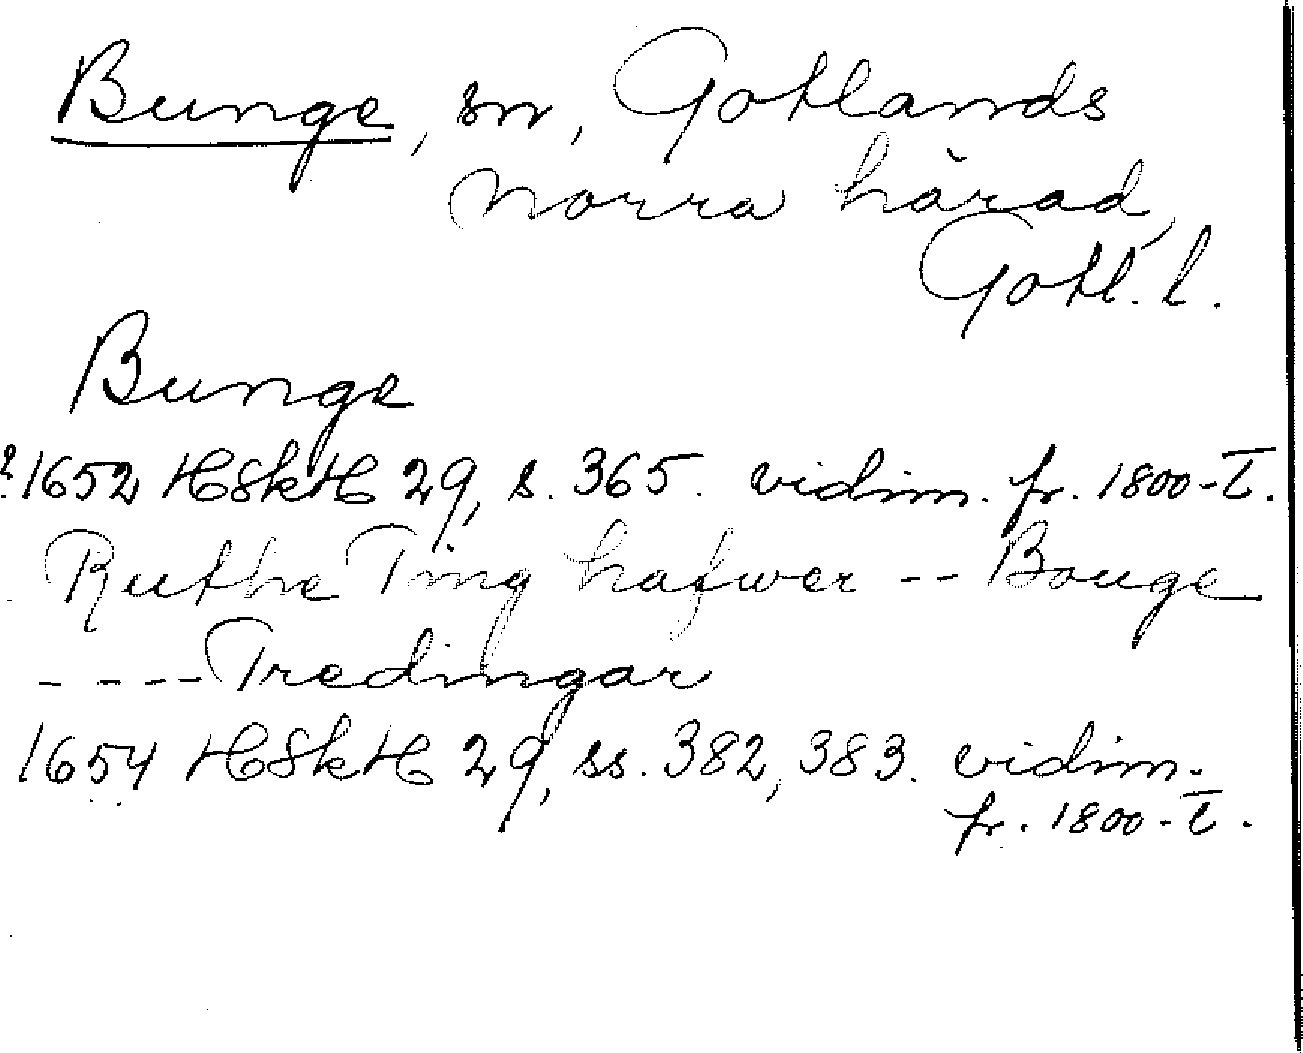 Bunge, sn, Gotlands
norra härad,
Gotl. l.
Bunge
?1652 HSkH 29, s. 365. vidim. fr. 1800-t.
Ruthe Ting hafwer -- Bouge
---- Tredingar
1654 HSkH 29, ss. 382, 383. vidim.
fr. 1800-t.